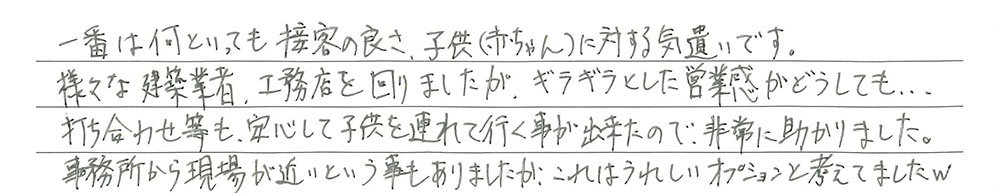 一番は何といっても接客の良さ、子供(赤ちゃん)に対する気遣いです。
様々な建築業者、工務店を回りましたが、ギラギラとした営業感がどうしても...
打ち合わせ等も、安心して子供を連れて行く事が出来たので、非常に助かりました。
事務所から現場が近いという事もありましたが、これはうれしいオプションと考えてましたw